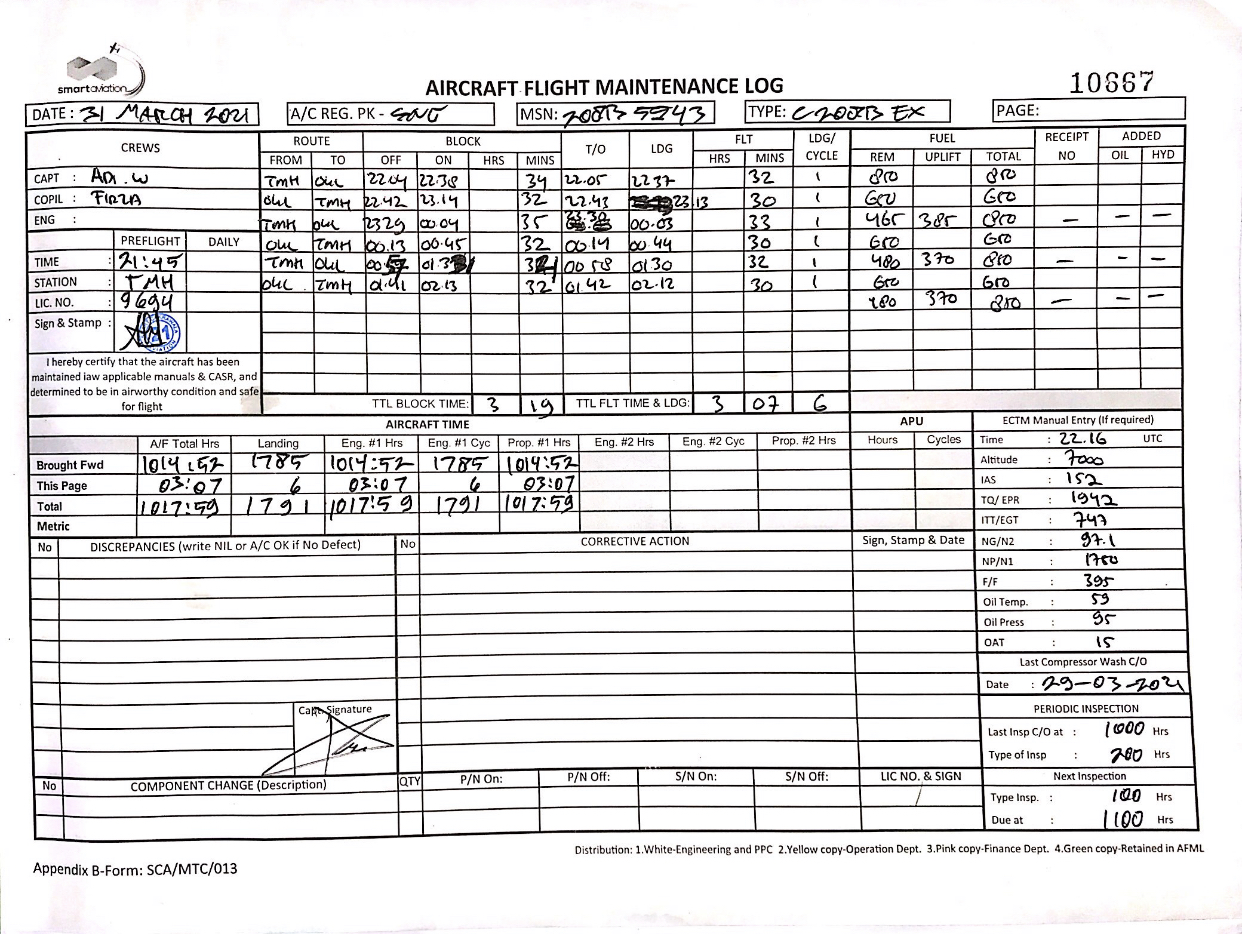 smartaviation
AIRCRAFT FLIGHT MAINTENANCE LOG
10667
DATE : 31 MARCH 2021 A/C REG. PK - SNG MSN: 208B 5543 TYPE: C208B EX PAGE:
CREWS ROUTE BLOCK T/O LDG FLT LDG/ CYCLE FUEL RECEIPT NO ADDED
FROM TO OFF ON HRS MINS HRS MINS REM UPLIFT TOTAL OIL HYD
CAPT : ADI.W TMH OUL 22.04 22.38 34 22.05 22 37 32 1 810 810
COPIL : FIRZA OUL TMH 22.42 23.14 32 22.43 23.13 30 1 610 610
ENG : TMH OUL 2329 00.04 35 23.30 00.03 33 1 465 385 850 – – –
PREFLIGHT DAILY OUL TMH 00.13 00.45 32 00.14 00.44 30 1 650 650
TIME : 21:45 TMH OUL 00 58 01.30 32 1 480 370 850 – – –
STATION : TMH OUL TMH 01.41 02.13 32 01.42 02.12 30 1 650 650
LIC. NO. : 9694 480 370 850 – – –
Sign & Stamp :
I hereby certify that the aircraft has been
maintained iaw applicable manuals & CASR, and
determined to be in airworthy condition and safe
for flight
TTL BLOCK TIME: 3 19 TTL FLT TIME & LDG: 3 07 6
AIRCRAFT TIME APU ECTM Manual Entry (If required)
A/F Total Hrs Landing Eng. #1 Hrs Eng. #1 Cyc Prop. #1 Hrs Eng. #2 Hrs Eng. #2 Cyc Prop. #2 Hrs Hours Cycles Time : 22.16 UTC
Brought Fwd 1014:52 1785 1014:52 1785 1014:52 Altitude : 7000
This Page 03:07 6 03:07 6 03:07 IAS : 152
Total 1017:59 1791 1017:59 1791 1017:59 TQ/ EPR : 1942
Metric ITT/EGT : 747
No DISCREPANCIES (write NIL or A/C OK if No Defect) No CORRECTIVE ACTION Sign, Stamp & Date NG/N2 : 97.1
NP/N1 : 1760
F/F : 395
Oil Temp. : 59
Oil Press : 95
OAT : 15
Last Compressor Wash C/O
Date : 29-03-2021
Capt. Signature
PERIODIC INSPECTION
Last Insp C/O at : 1000 Hrs
Type of Insp : 200 Hrs
No COMPONENT CHANGE (Description) QTY P/N On: P/N Off: S/N On: S/N Off: LIC NO. & SIGN Next Inspection
Type Insp. : 100 Hrs
Due at : 1100 Hrs
Distribution: 1.White-Engineering and PPC 2.Yellow copy-Operation Dept. 3.Pink copy-Finance Dept. 4.Green copy-Retained in AFML
Appendix B-Form: SCA/MTC/013